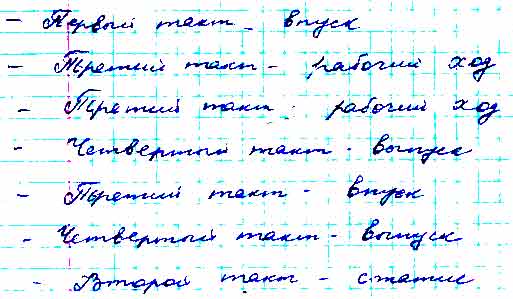 - Первый такт - впуск
- Третий такт - рабочий ход
- Третий такт - рабочий ход
- Четвертый такт - выпуск
- Третий такт - впуск
- Четвертый такт - выпуск
- Второй такт - сжатие